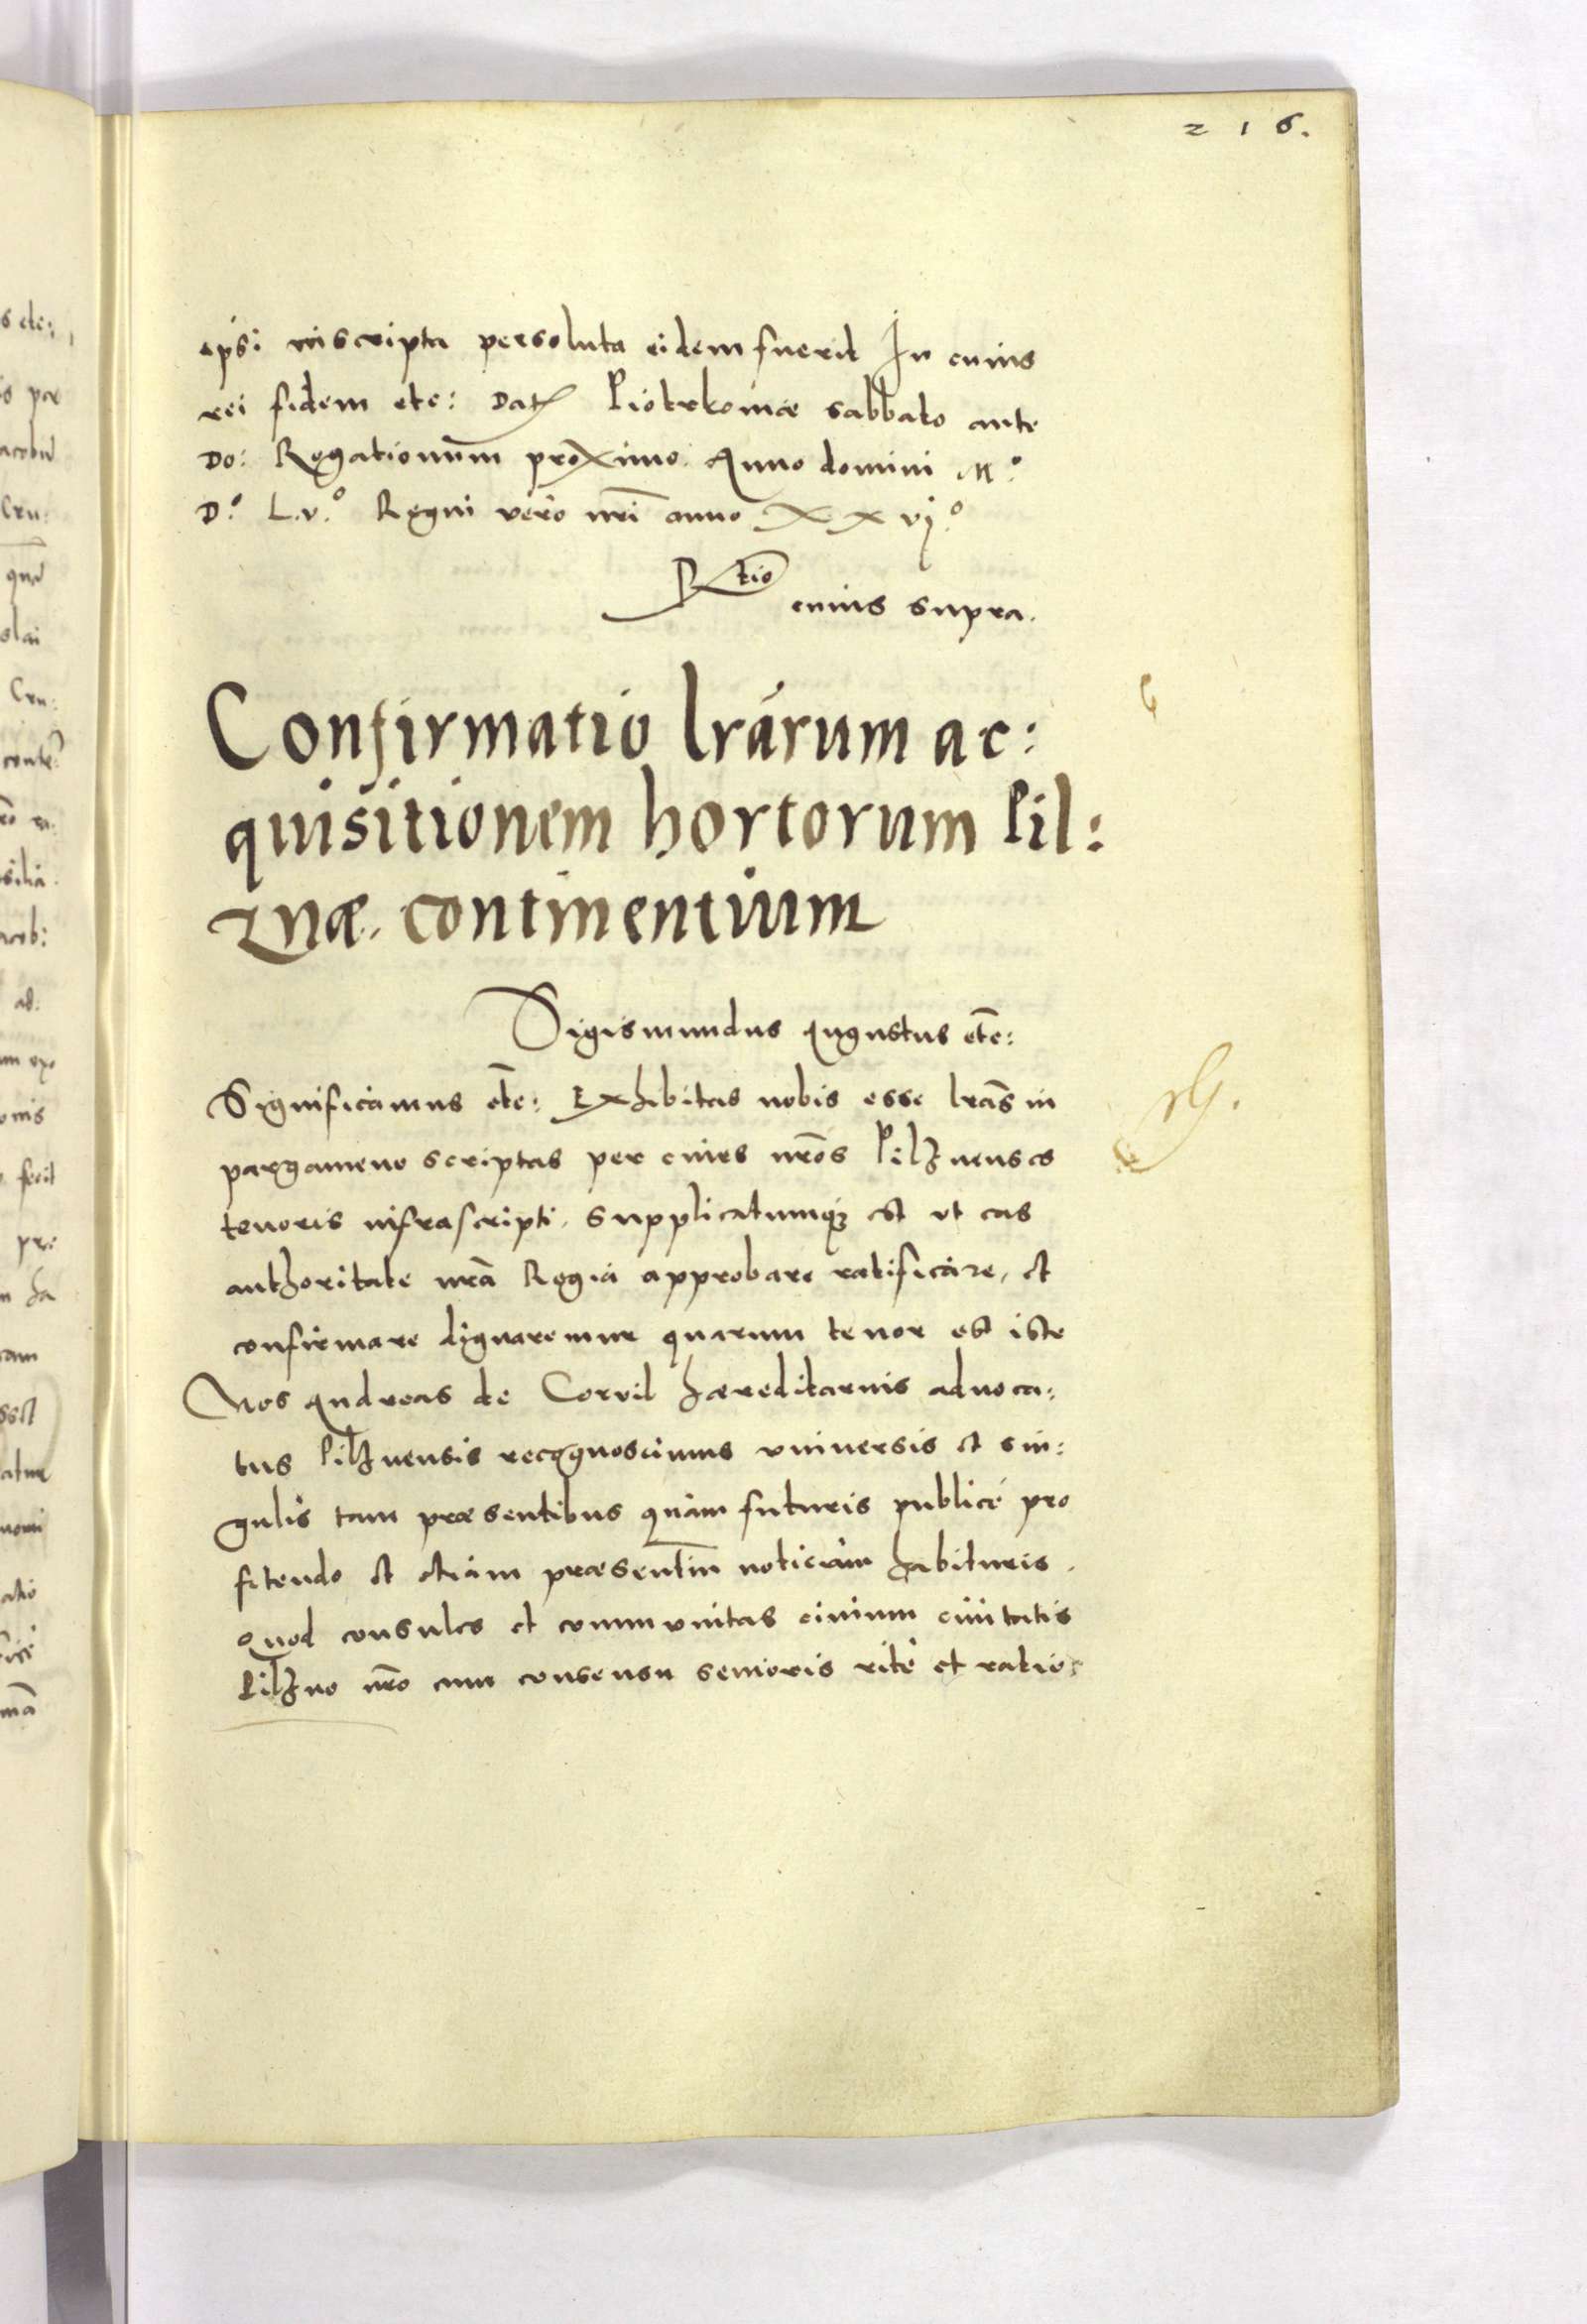 216.
ipsi inscripta persoluta eidem fuerit In cuius
rei fidem etc: Dat Piotrkoviae sabbato ante
Do: Rogationum proximo. Anno domini M.º
D.º L.v.º Regni vero nri anno XXvj.º
Rtio
cuius supra.
Confirmatio lrarum ac:
quisitionem hortorum Pil:
znæ. continentium
Sigismundus Augustus etc:
Significamus etc: Exhibitas nobis esse lras in
pargameno scriptas per ciues nros Pilznenses
tenoris infrascripti. supplicatumq; est ut eas
authoritate nra Regia approbare ratificare, et
confirmare dignaremur quarum tenor est iste
Nos Andreas de Corvil hæreditarius aduoca:
tus Pilznensis recognoscimus vniuersis et sin:
gulis tam præsentibus quàm futuris publicè pro
fitendo et etiam præsentim noticiam habituris.
Quod consules et communitas ciuium ciuitatis
Pilzno nro cum consensu senioris ritè et ratio: